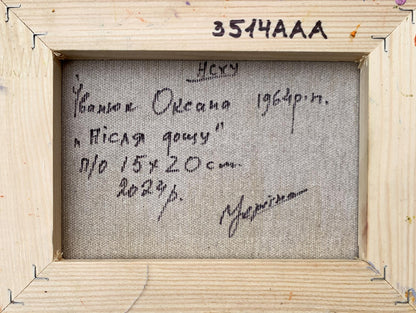 3514AAA
НСХУ
Іванюк Оксана 1964р.н.
„Після дощу"
п/о 15х20см.
2024р.
Україна